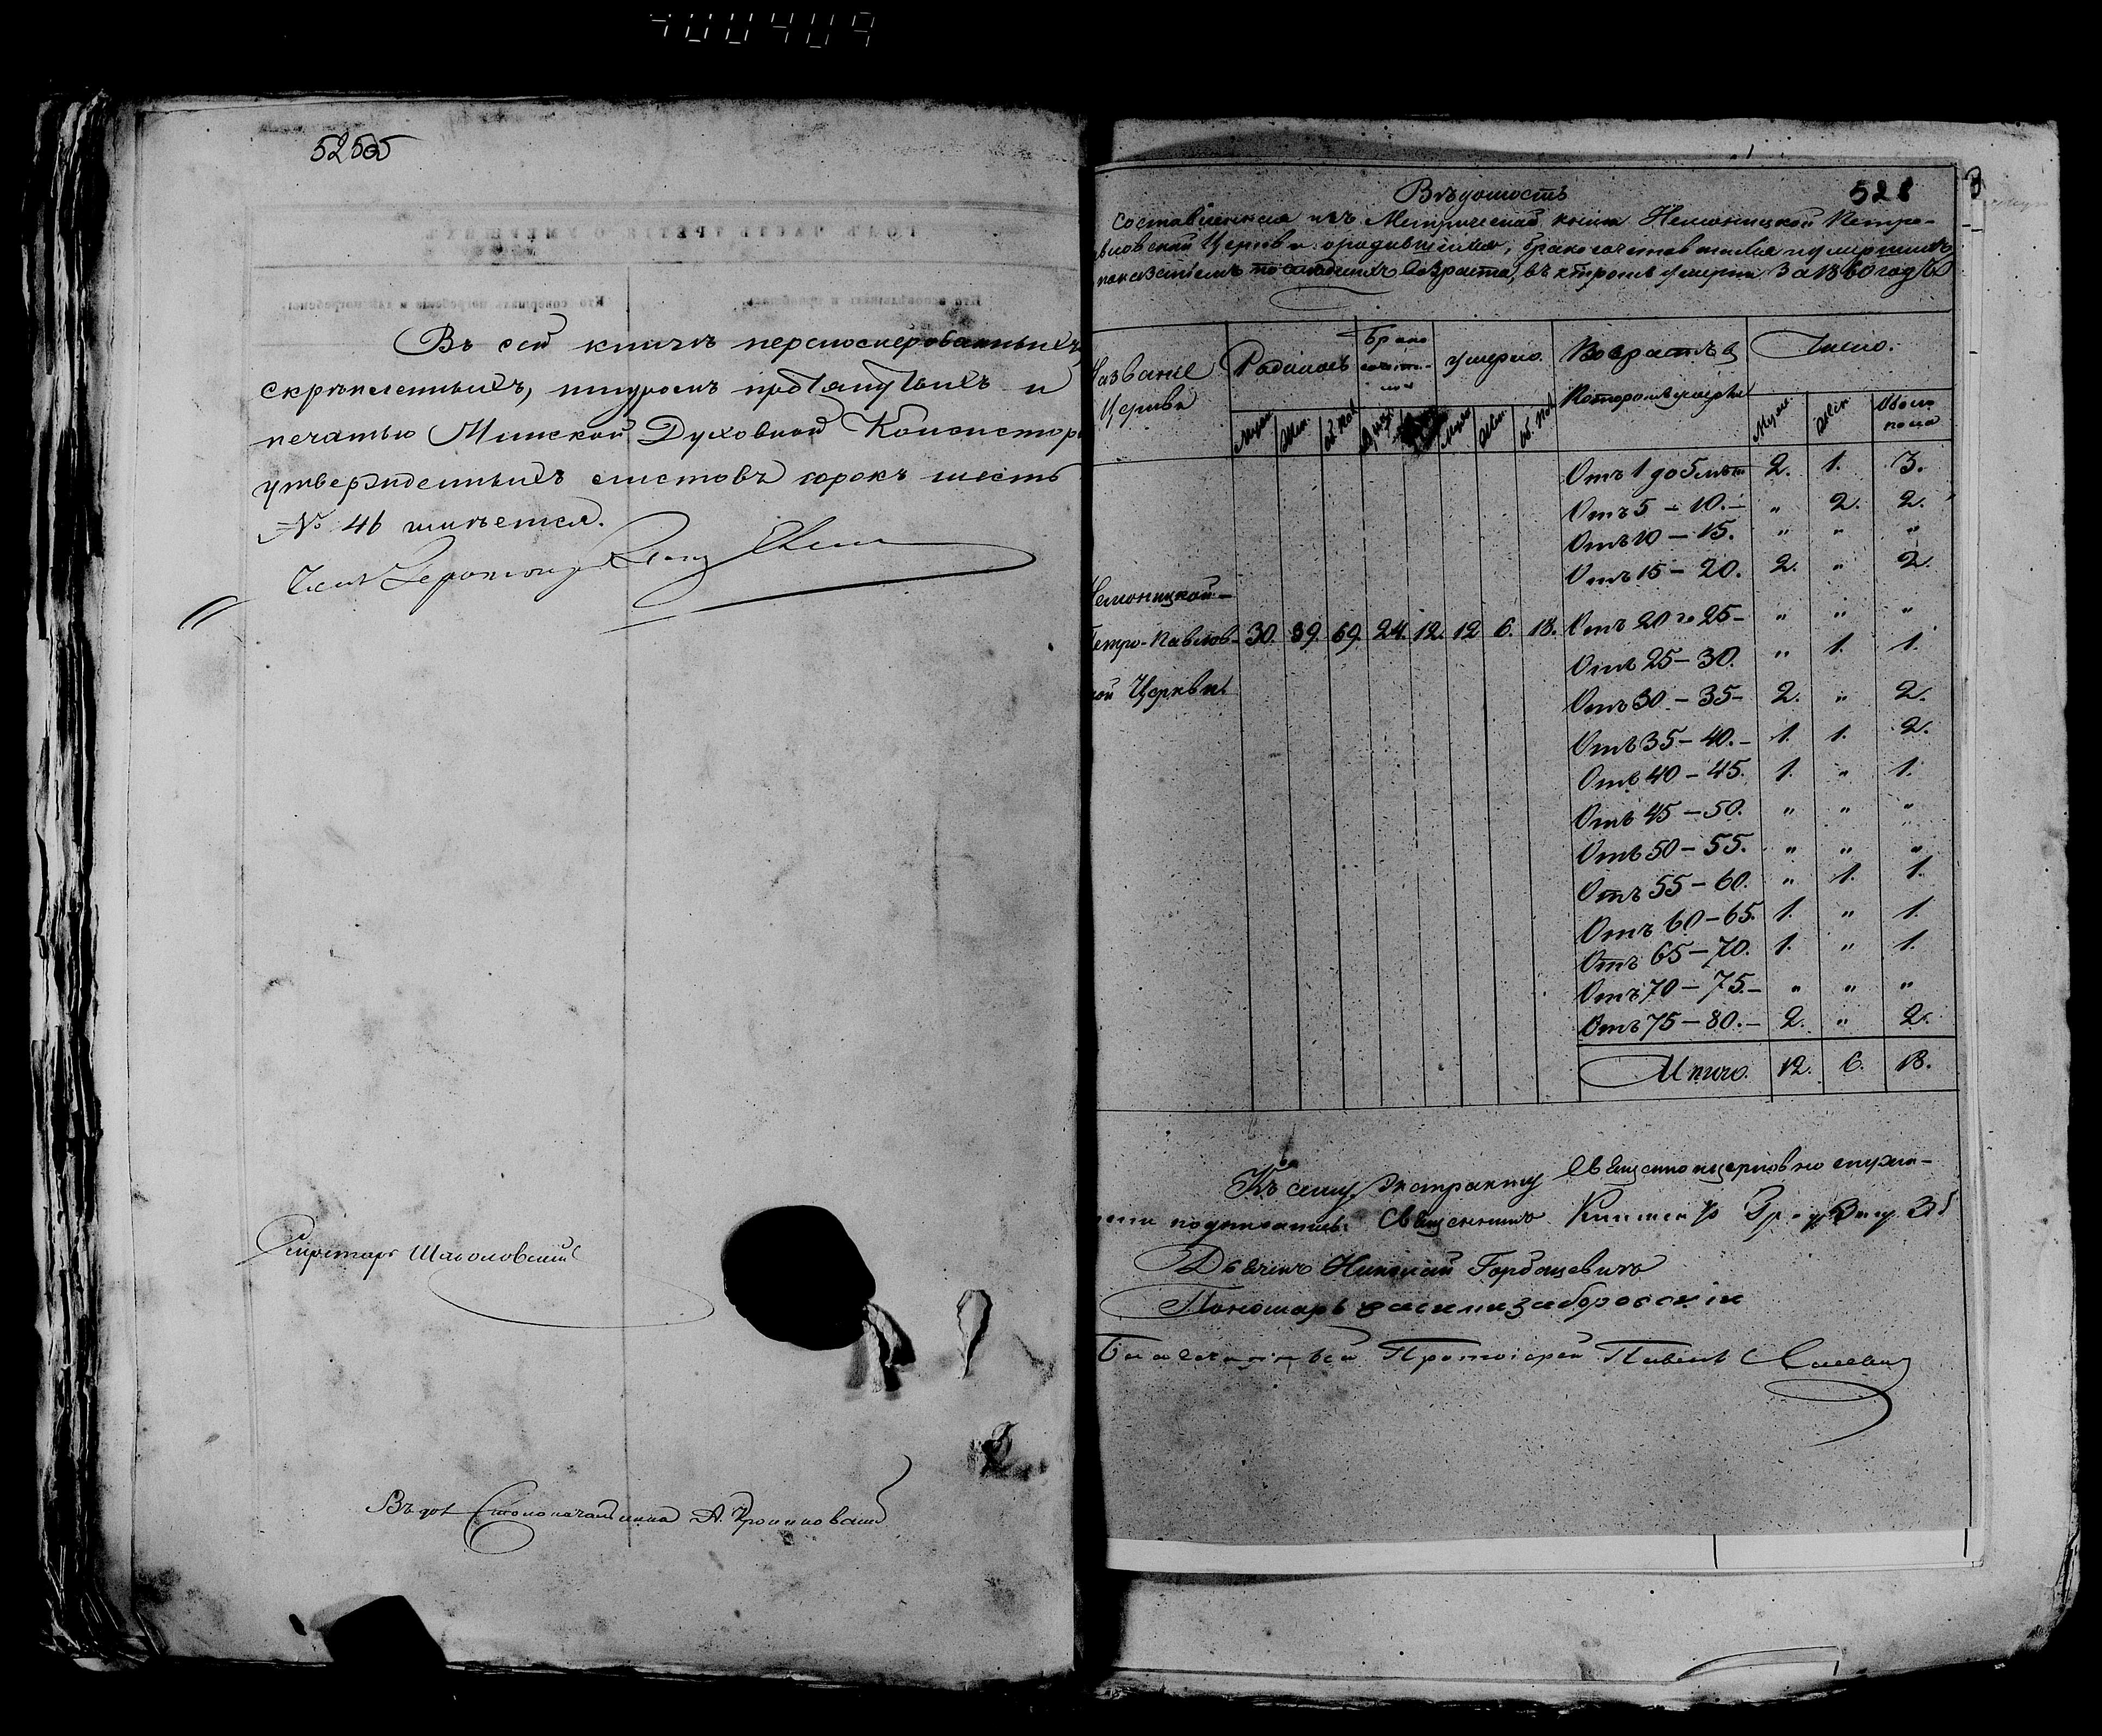 525об
Въ сей книгѣ перенумерованныхъ
скрѣпленныхъ, шнуромъ протянутыхъ и
печатью Минской Духовной Консисторіи
утвержденныхъ листовъ сорокъ шесть
№ 46 имѣется.
Членъ
Секретарь
Въ дол. Столоначальника А.
528
Вѣдомость
составленная изъ Метрической книги Немоницкой Петро-
вловской Церкви о родившихся, бракосочетавшихся и умершихъ
показаніемъ возраста, въ которомъ умерли За 1860 годъ
Названіе
Церкви
Родилось
Брако
сочета-
лось
умерло.
Возрастъ въ
которомъ умерли
Число.
Муж.
Жен.
об. пол.
Муж.
Жен.
об. пол.
Муж.
Жен.
Обоего
пола
Отъ 1 до 5 лѣтъ 2. 1. 3.
Отъ 5 – 10. – „ 2. 2.
Отъ 10 – 15. „ „ „
Отъ 15 – 20. 2. „ 2.
Немоницкой –
Петро-Павлов- 30. 39. 69. 24. 12. 12 6. 18. Отъ 20 – 25 – „ „ „
Отъ 25 – 30. „ 1. 1.
ой Церкви.
Отъ 30 – 35 – 2. „ 2.
Отъ 35 – 40. – 1. 1. 2.
Отъ 40 – 45. 1. „ 1.
Отъ 45 – 50. „ „ „
Отъ 50 – 55. „ „ „
Отъ 55 – 60. „ 1. 1.
Отъ 60 – 65. 1. „ 1.
Отъ 65 – 70. 1. „ 1.
Отъ 70 – 75. – „ „ „
Отъ 75 – 80. – 2. „ 2.
Итого. 12. 6. 18.
Къ сему экстракту Священноцерковнослужи-
тели подписались: Священникъ
Дьячекъ Николай Горбацевичъ
Пономарь Василий Заборовскій
Благочинный Протоіерей Павелъ